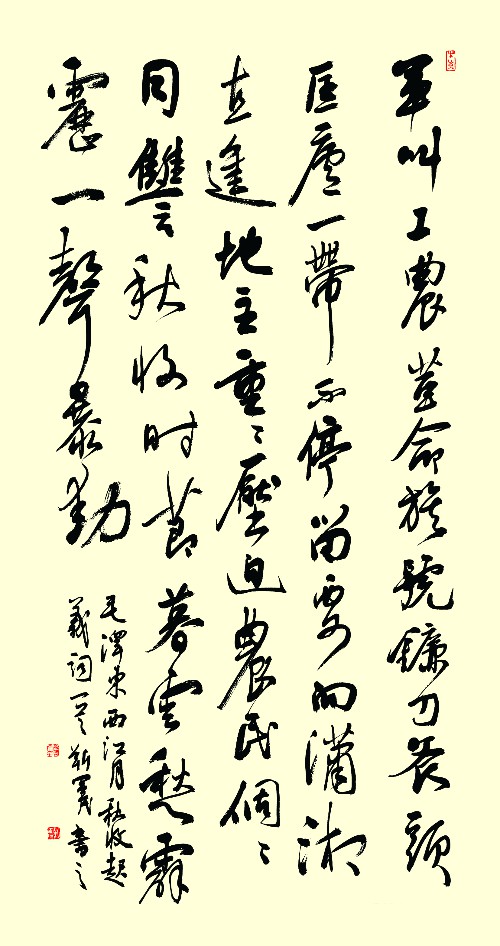 軍叫工農革命旗號鐮刀斧頭
匡廬一帶不停留要向瀟湘
直進地主重々壓迫農民個々
同讐秋收时節暮雲愁霹
靂一聲暴動
毛澤東西江月秋收起
義詞一首 書之